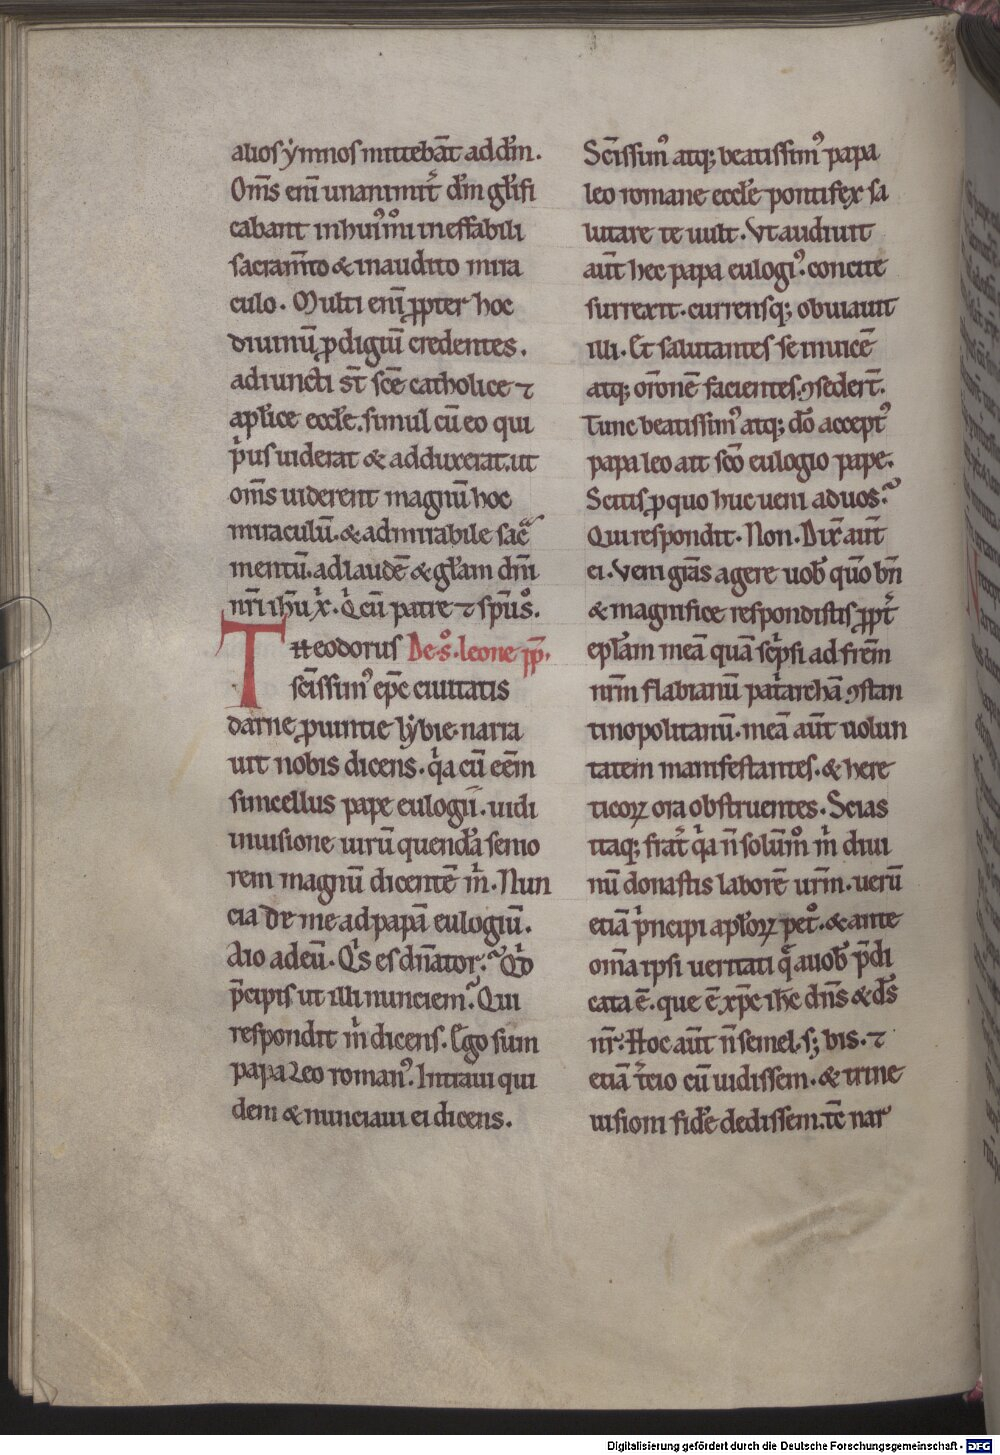 alios ẏmnos mittebāt ad dm̄.
Om̄s enī unanimit̄ dm̄ gl̄ifi
cabant in huiꝰmͦi ineffabili
sacram̄to & inaudito mira
culo. Multi enī ꝓpter hoc
diuinū ꝓdigiū credentes.
adiuncti st̄ sc̄e catholice ⁊
apl̄ice eccl̄e. simul cū eo qui
pͥus uiderat & adduxerat. ut
om̄s uiderent magnū hoc
miraculū. & admirabile sac̄
mentū. ad laudē & gl̄am dn̄i
nr̄i ih̄u x̄. Qͥ cū patre ⁊ sp̄u sͦ.
Theodorus De sͦ. leone pp̄.
sc̄issimꝰ ep̄c ciuitatis
darne ꝓuintie lẏbie. narra
uit nobis dicens. qͥa cū eēm
sincellus pape eulogii. uidi
in uisione uirū quendā senio
rem magnū dicentē mͥ. Nun
cia de me ad papā eulogiū.
Aio ad eū. Qͥs es dn̄ator? Qͥd
p̄cipis ut illi nunciem? Qui
respondit mͥ dicens. Ego sum
papa Leo romanꝰ. Intraui qui
dem & nunciaui ei dicens.
Sc̄issimꝰ atq; beatissimꝰ papa
leo romane eccl̄e pontifex sa
lutare te uult. Vt audiuit
aūt hec papa eulogiꝰ. concite
surrexit. currensq; obuiauit
illi. Et salutantes se inuicē
atq; orōnē facientes. ꝯseder̄t.
Tunc beatissimꝰ atq; dō acceptꝰ
papa leo ait sc̄o eulogio pape.
Scitis ꝓ quo huc ueni ad uos?
Qui respondit. Non. Dix̄ aūt
ei. Veni gr̄as agere uob̄ quō bn̄
& magnifice respondistis ꝓpt̄
epl̄am meā quā scͥpsi ad fr̄em
nr̄m flabianū pat̄archā ꝯstan
tinopolitanū. meā aūt uolun
tatem manifestantes. & here
ticoꝝ ora obstruentes. Scias
itaq; frat̄ qͥa n̄ solūmͦ mͥ diui
nū donastis laborē ur̄m. uerū
etiā pͥncipi apl̄oꝝ petͦ. & ante
om̄a ipsi ueritati q̄ a uob̄ p̄di
cata ē. que ē xp̄c ih̄c dn̄s & ds̄
nr̄. Hoc aūt n̄ semel. s; bis. ⁊
etiā t̄cio cū uidissem. & trine
uisioni fidē dedissem. tc̄ nar
Digitalisierung gefördert durch die Deutsche Forschungsgemeinschaft - DFG